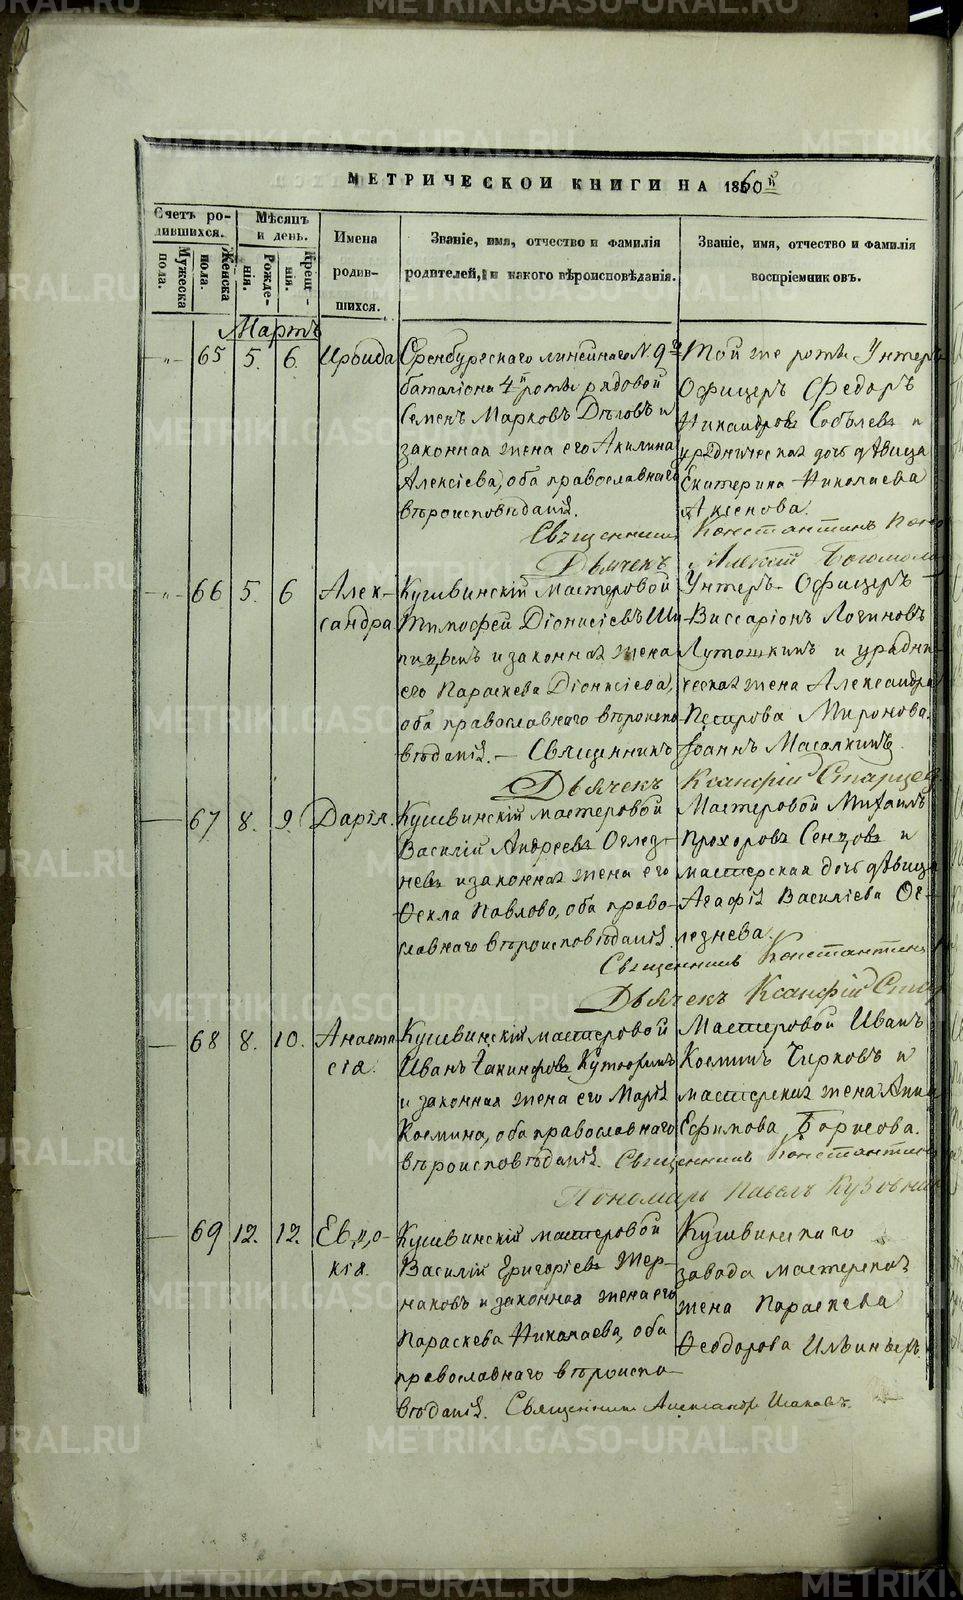 МЕТРИЧЕСКОЙ КНИГИ НА 1860й
Счетъ ро-
дившихся.
Мужеска
пола.
Женска
пола.
Мѣсяцъ
и день.
Рожде-
нія.
Крещ-
нія.
Имена
родив-
шихся.
Званіе, имя, отчество и фамилія
родителей, и какого вѣроисповѣданія.
Званіе, имя, отчество и фамилія
воспріемниковъ.
Мартъ
65 5. 6. Ираида
Оренбургскаго линейнаго N 9го
баталіона 4й роты рядовой
Семенъ Марковъ Дѣловъ и
законная жена его Акилина
Алексіева, оба православнаго
вѣроисповѣданія.
Той же роты Унтеръ
Офицеръ Федоръ
Никандровъ Соболевъ и
урядническая дочь дѣвица
Екатерина Николаева
Аксенова.
Священникъ Константинъ
Дьячекъ
66 5. 6 Алек-
сандра
Кушвинскій Мастеровой
Тимофей Діонисіевъ
и законная жена
его Параскева Діонисіева,
оба православнаго вѣроиспо-
вѣданія. –
Унтеръ-Офицеръ
Виссаріонъ Логиновъ
Лутошкинъ и урядни-
ческая жена Александра
Миронова.
Священникъ Іоаннъ
Дьячекъ Ксанфій Старцев
67 8. 9. Дарія.
Кушвинскій мастеровой
Василій Андреевъ Оглез-
невъ и законная жена его
Фекла Павлова, оба право-
славнаго вѣроисповѣданія.
Мастеровой Михаилъ
Прохоровъ Сенцовъ и
мастерская дочь дѣвица
Агафія Василіева Ог-
лезнева.
Священникъ Константинъ
Дьячекъ Ксанфій Стар
68 8. 10. Анаста
сія.
Кушвинскій мастеровой
Иванъ
и законная жена его Марія
Козмина, оба православнаго
вѣроисповѣданія.
Мастеровой Иванъ
Козминъ Чирковъ и
мастерская жена Анна
Ефимова Борисова.
Священникъ Константинъ
Пономарь Павелъ
69 12. 12. Евдо-
кія.
Кушвинскій мастеровой
Василій Григоріевъ Жер-
наковъ и законная жена его
Параскева Николаева, оба
православнаго вѣроиспо-
вѣданія.
Кушвинскаго
завода мастерская
жена Параскева
Феодорова
Священникъ Александръ
METRIKI.GASO-URAL.RU